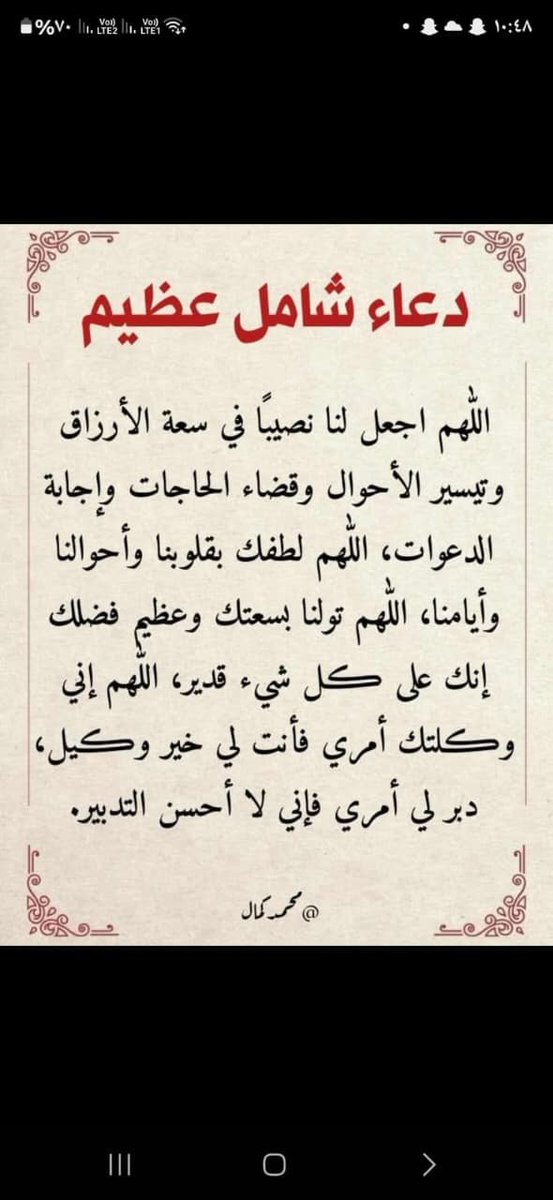 %٧٠ Vo) LTE2 Vo) LTE1 ١٠:٤٨
دعاء شامل عظيم
اللهم اجعل لنا نصيبًا في سعة الأرزاق
وتيسير الأحوال وقضاء الحاجات وإجابة
الدعوات، اللهم لطفك بقلوبنا وأحوالنا
وأيامنا، اللهم تولنا بسعتك وعظيم فضلك
إنك على كل شيء قدير، اللهم إني
وكلتك أمري فأنت لي خير وكيل،
دبر لي أمري فإني لا أحسن التدبير.
@محمد كمال